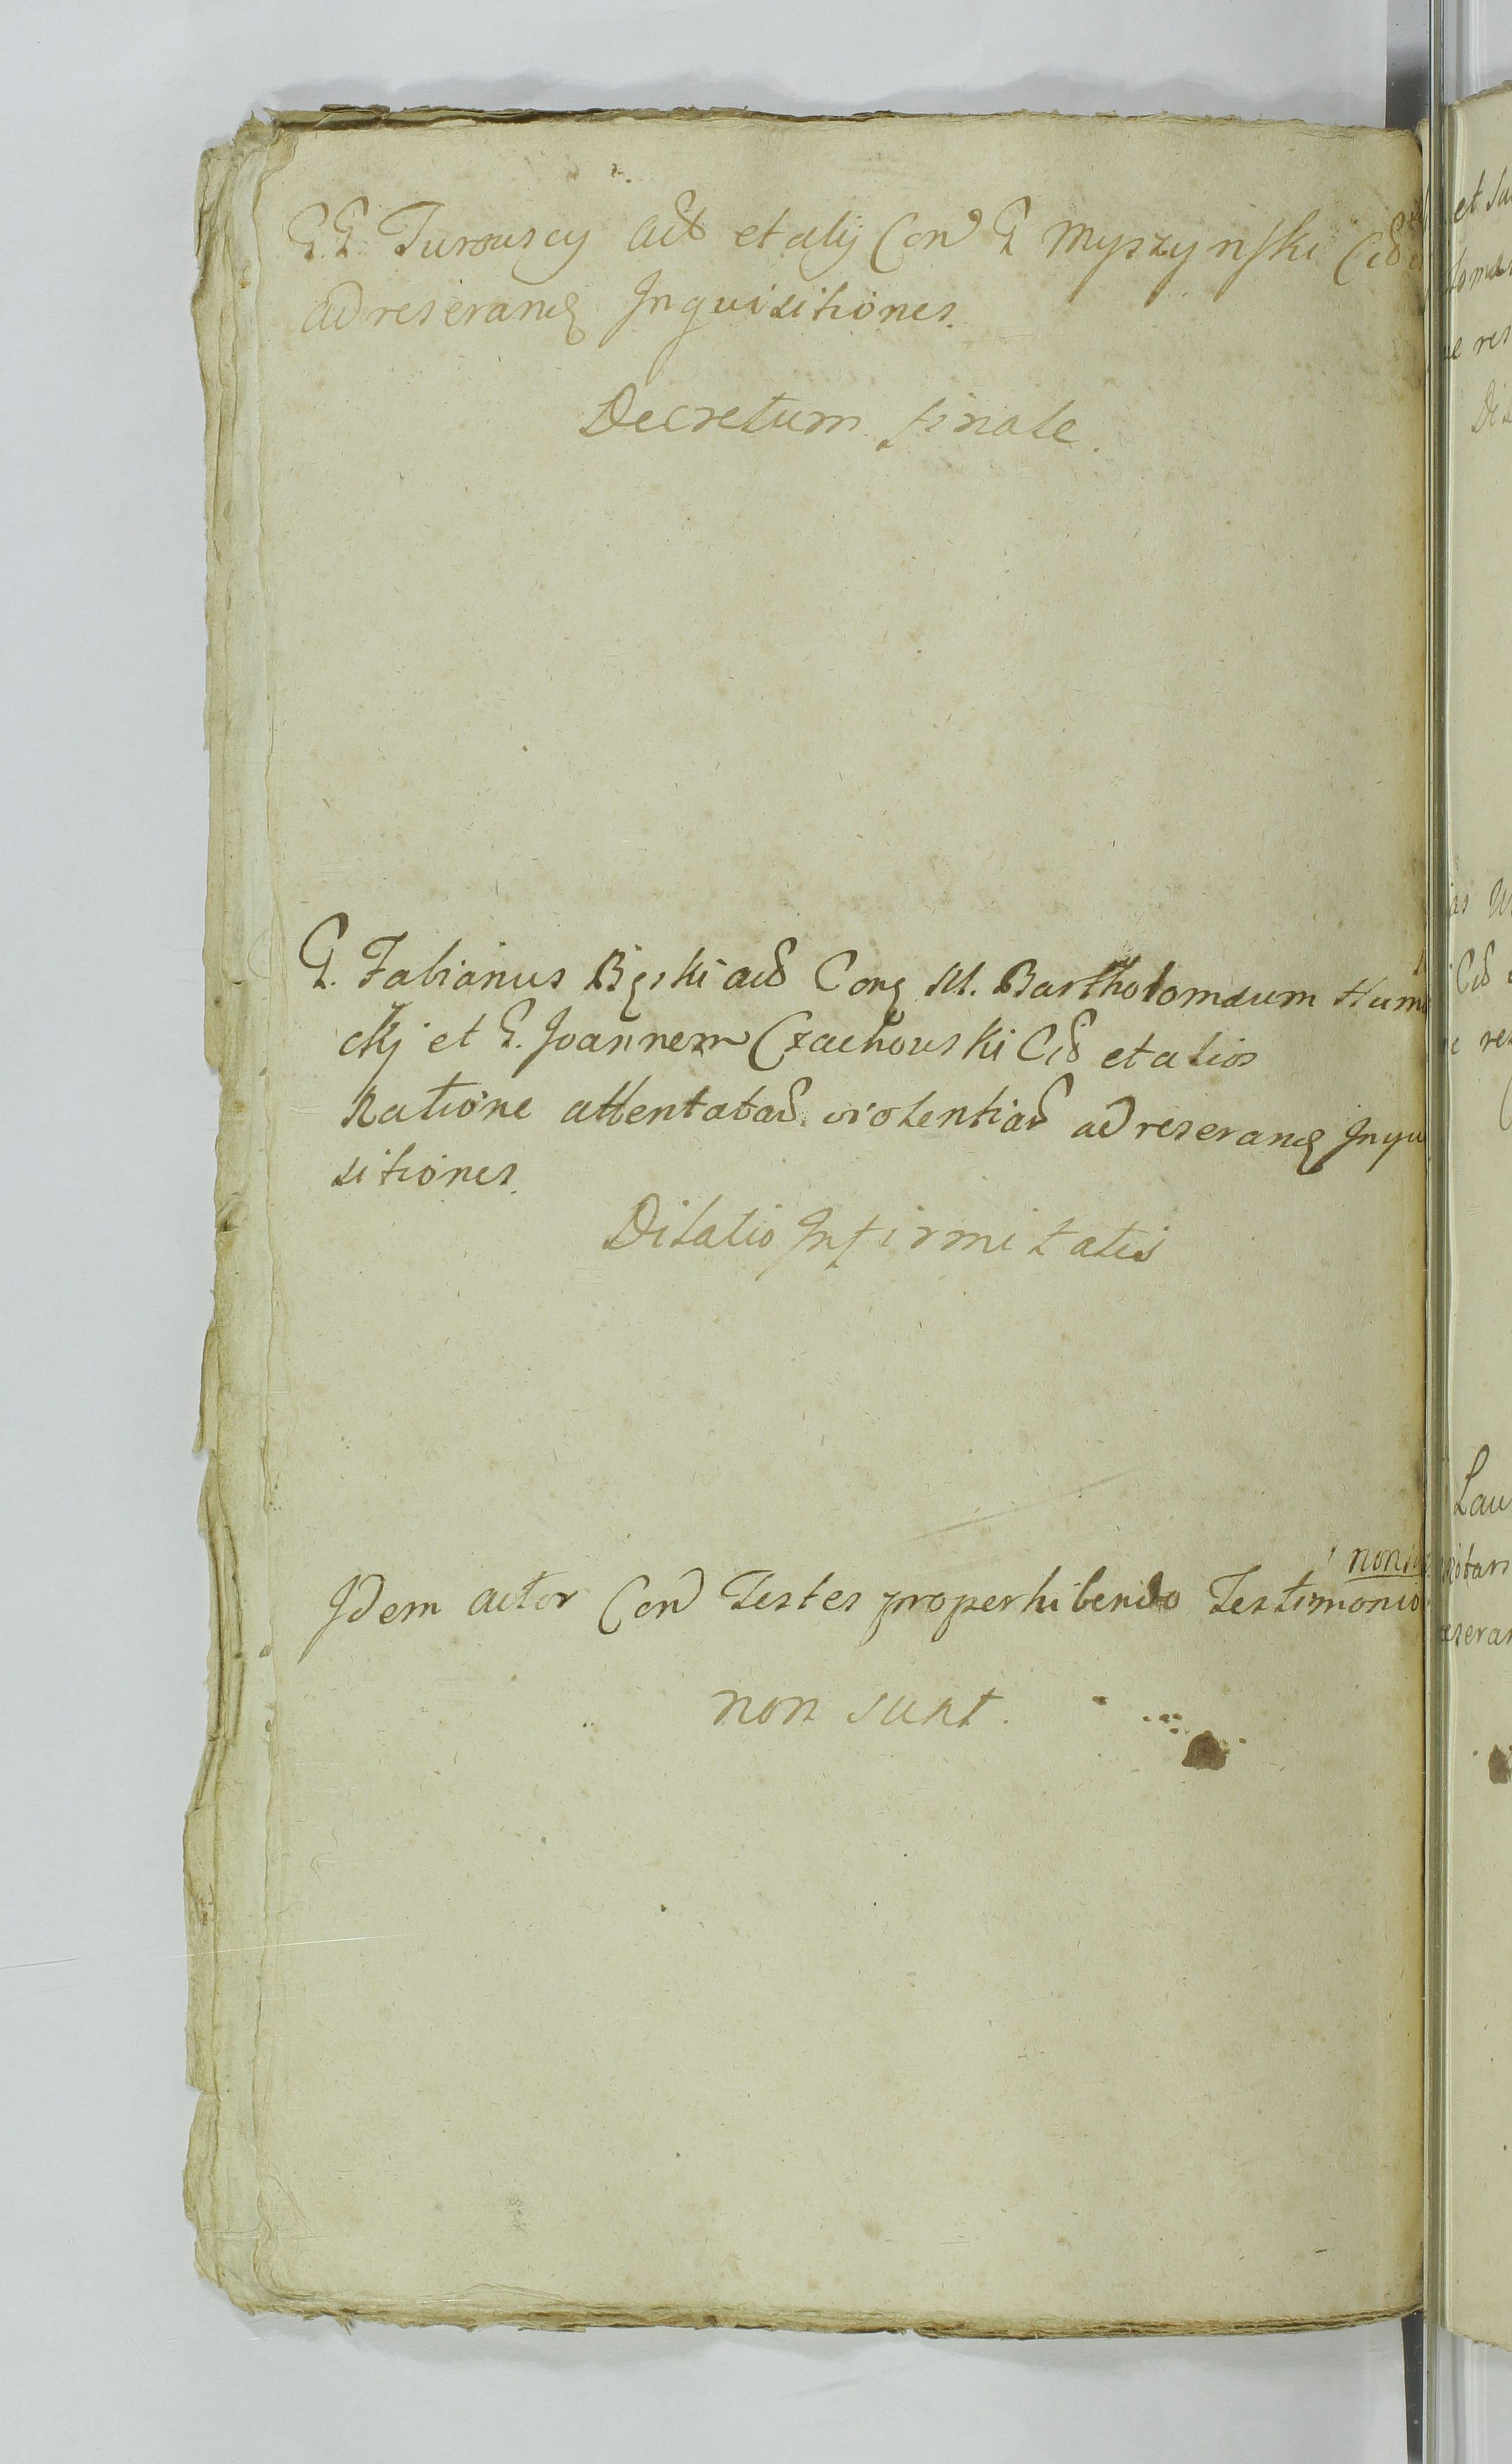 G.G. Turowscy Act et alij Con G Myszynski Cit
ad reserand Inquisitiones.
Decretum finale.
G. Fabianus Bęski act Con M. Bartholomæum Hum
ckj et G. Joannem Czachowski Cit et alios
Ratione attentatas violentias ad reserand Inqui
sitiones.
Dilatio Infirmitatis
non
Idem actor Con Testes pro perhibendo Testimonio
non sunt.